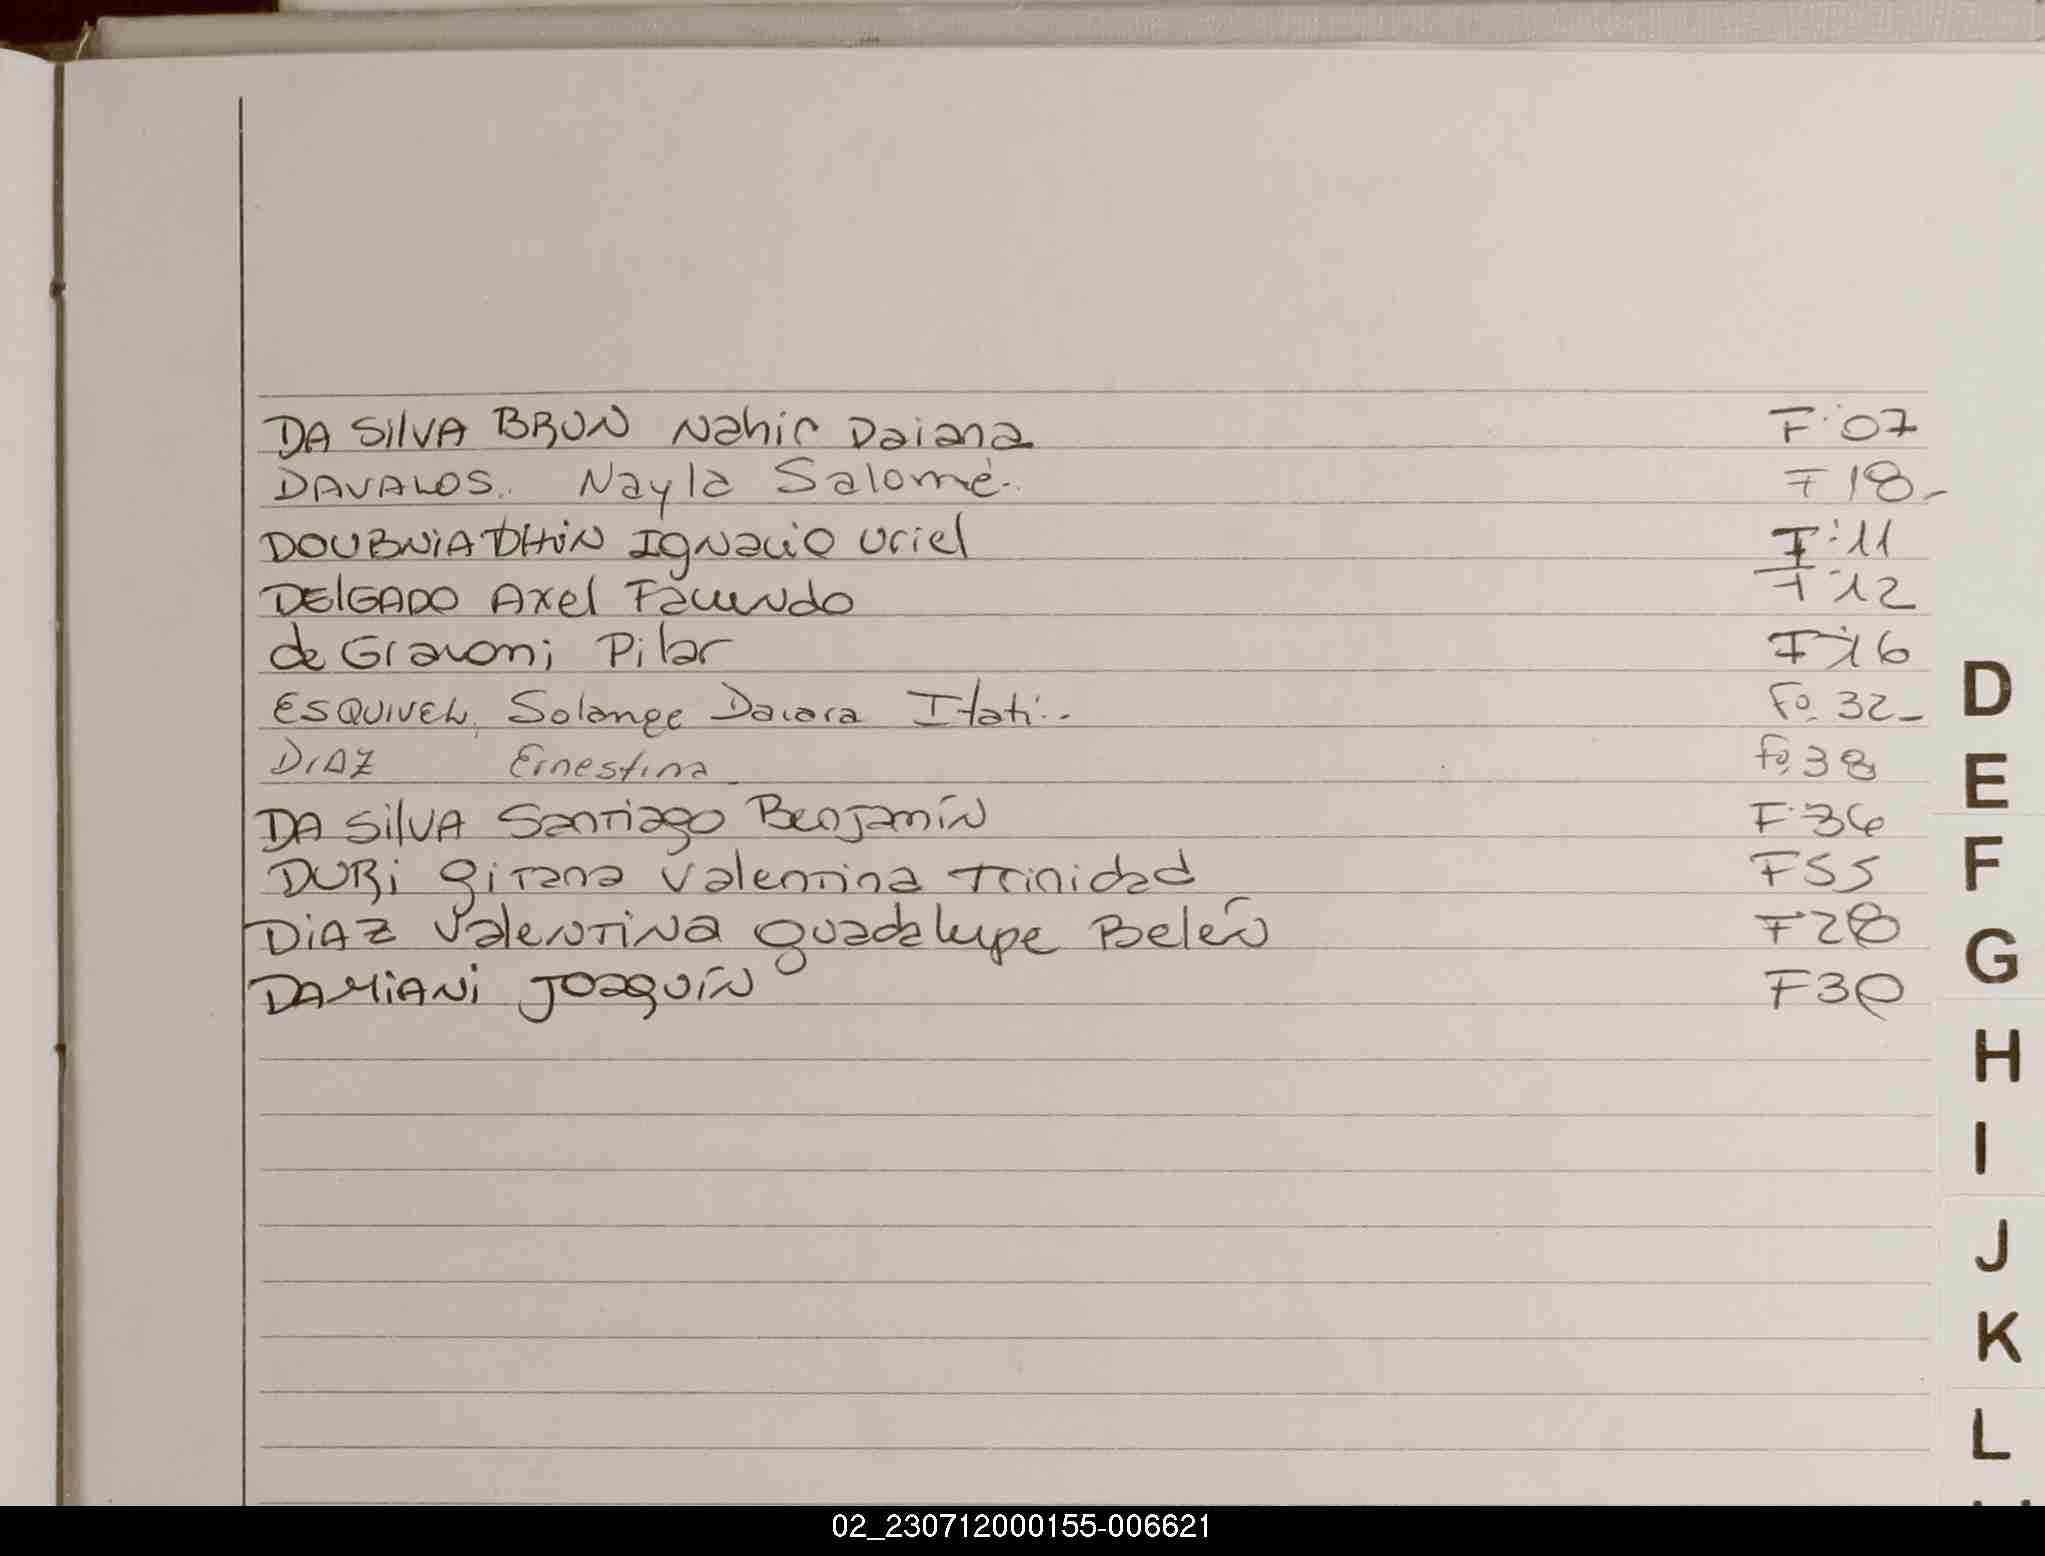 DA SILVA BRUN Nahir Daiana F: 07
DAVALOS. Nayla Salomé. F 18-
DOUBNIA DHIN Ignacio Uriel F: 11
DELGADO Axel Facundo F 12
de Giavoni Pilar F 16
ESQUIVEL, Solange Daiara Itati.- Fo. 32-
DIAZ Ernestina Fo. 38
DA SILVA Santiago Benjamín F 36
DURI gitana Valentina Trinidad F 55
DIAZ Valentina guadalupe Belén F 28
DAMIANI Joaquín F 30
D
E
F
G
H
I
J
K
L
02_230712000155-006621